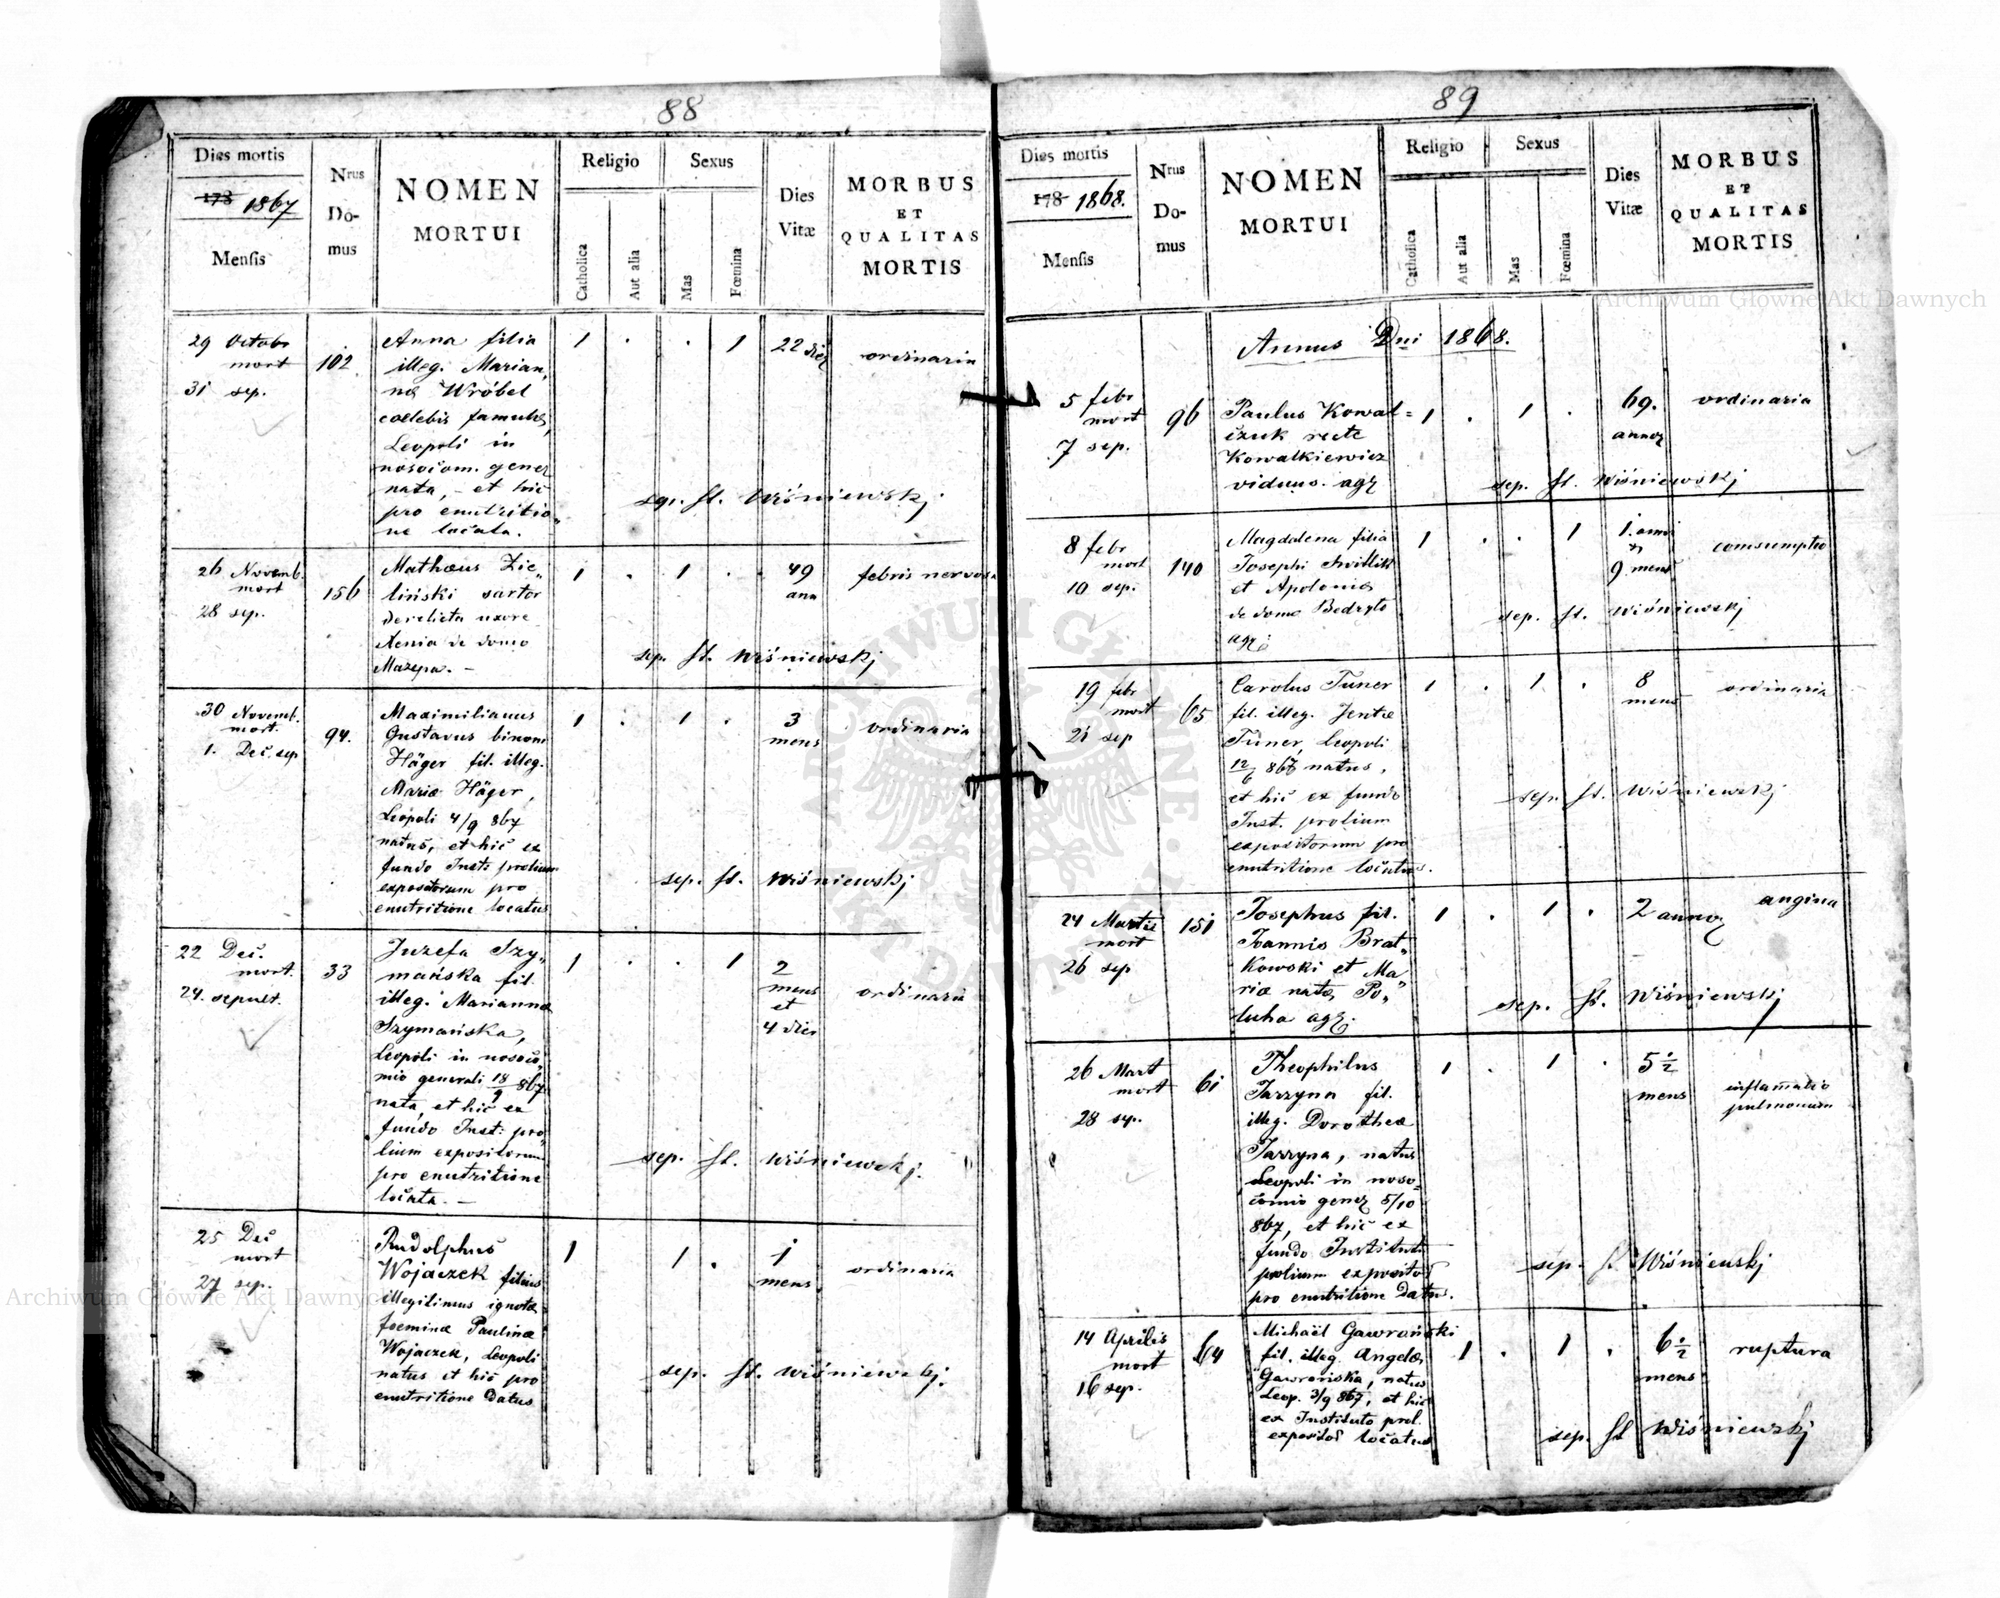 88
Dies mortis
178 1867
Mensis
Nrus
Do-
mus
NOMEN
MORTUI
Religio
Catholica
Aut alia
Sexus
Mas
Fœmina
Dies
Vitæ
MORBUS
ET
QUALITAS
MORTIS
29 Octobr
mort
31 sep.
102
Anna filia
illeg. Marian„
næ Wróbel
cœlebis famulæ,
Leopoli in
nosocom. gener
nata, - et hic
pro enutritio„
ne locata.
1 . . 1
22 dier
ordinaria
sep. St. Wiśniewskj
26 Novemb.
mort
28 sep.
156
Mathæus Zie„
liński sartor
derelicta uxore
Xenia de domo
Mazepa. -
1 . 1 .
49
ann
febris nervosa
sep. St. Wiśniewskj
30 Novemb.
mort.
1. Dec. sep
94.
Maximilianus
Gustavus binom
Häger fil. illeg.
Mariæ Häger,
Leopoli 4/9 867
natus, et hic ex
fundo Insti prolium
expositorum pro
enutritione locatus
1 . 1 .
3
mens
ordinaria
sep. St. Wiśniewskj
22 Dec.
mort.
24. sepult.
33
Juzefa Szy„
mańska fil.
illeg. Mariannæ
Szymańska,
Leopoli in nosoco„
mio generali 18/9 867
nata, et hic ex
fundo Inst: pro„
lium expositorum
pro enutritione
locata. -
1 . . 1
2
mens
et
4 dier
ordinaria
sep. St. Wiśniewskj.
25 Dec
mort
27 sep.
Rudolphus
Wojaczek filius
illegitimus ignotæ
foeminæ Paulinæ
Wojaczek, Leopoli
natus et hic pro
enutritione datus
1 1 .
1
mens
ordinaria
sep. St. Wiśniewskj.
89
Dies mortis
178 1868.
Mensis
Nrus
Do-
mus
NOMEN
MORTUI
Religio
Catholica
Aut alia
Sexus
Mas
Fœmina
Dies
Vitæ
MORBUS
ET
QUALITAS
MORTIS
Annus Dni 1868.
5 febr
mort
7 sep.
96
Paulus Kowal=
czuk recte
Kowalkiewicz
viduus. agr
1 . 1 .
69.
annor
ordinaria
sep. St. Wiśniewskj
8 febr
mort
10 sep.
140
Magdalena filia
Josephi
et Apoloniæ
de domo Bedryło
agr:
1 . . 1
1. anni
9. mens
comsumptio
sep. St. Wiśniewskj
19 febr
mort
21 sep
65
Carolus Tuner
fil. illeg. Jentæ
Tuner, Leopoli
12/6 867 natus,
et hic ex fundo
Inst. prolium
expositorum pro
enutritione locatus.
1 . 1 .
8
mens
ordinaria
sep. St. Wiśniewskj
24 Martii
mort
26 sep
151
Josephus fil.
Joannis Brat„
kowski et Ma„
riæ natæ Po„
luha agr.
1 . 1 .
2 annor
angina
sep. St. Wiśniewskj
26 Mart
mort
28 sep.
61
Theophilus
Jarzyna fil.
illeg. Dorotheæ
Jarzyna, natus
Leopoli in noso=
comio gener 5/10
867, et hic ex
fundo Instituti
prolium exposito
pro enutritione datus.
1 . 1 .
5 1/2
mens
inflamatio
pulmonum
sep. St Wiśniewskj
14 Aprilis
mort
16 sep.
64
Michaël Gawroński
fil. illeg. Angelæ
Gawrońska, natus
Leop. 3/9 867, et hic
ex Instituto prol.
exposito locatus
1 . 1 .
6 1/2
mens
ruptura
sep. St Wiśniewskj
Archiwum Główne Akt Dawnych
Archiwum Główne Akt Dawnych
ARCHIWUM GŁÓWNE AKT DAWNYCH